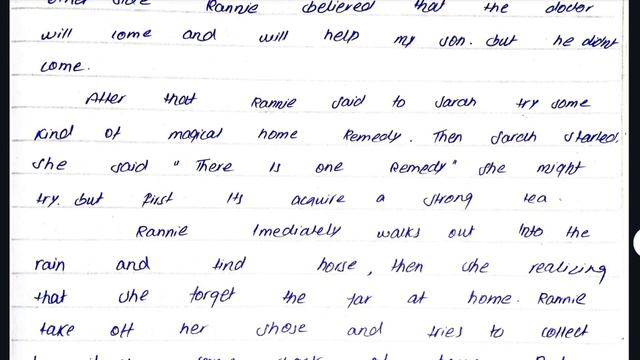 side Rannie believed that the doctor
will come and will help my son. but he didnt
come.
After that Rannie said to Sarah try some
kind of magical home Remedy. Then Sarah started.
She said "There Is one Remedy" she might
try. but first Its acquire a strong tea.
Rannie Imediately walks out Into the
rain and find horse, then she realizing
that she forget the far at home. Rannie
take off her shose and tries to collect